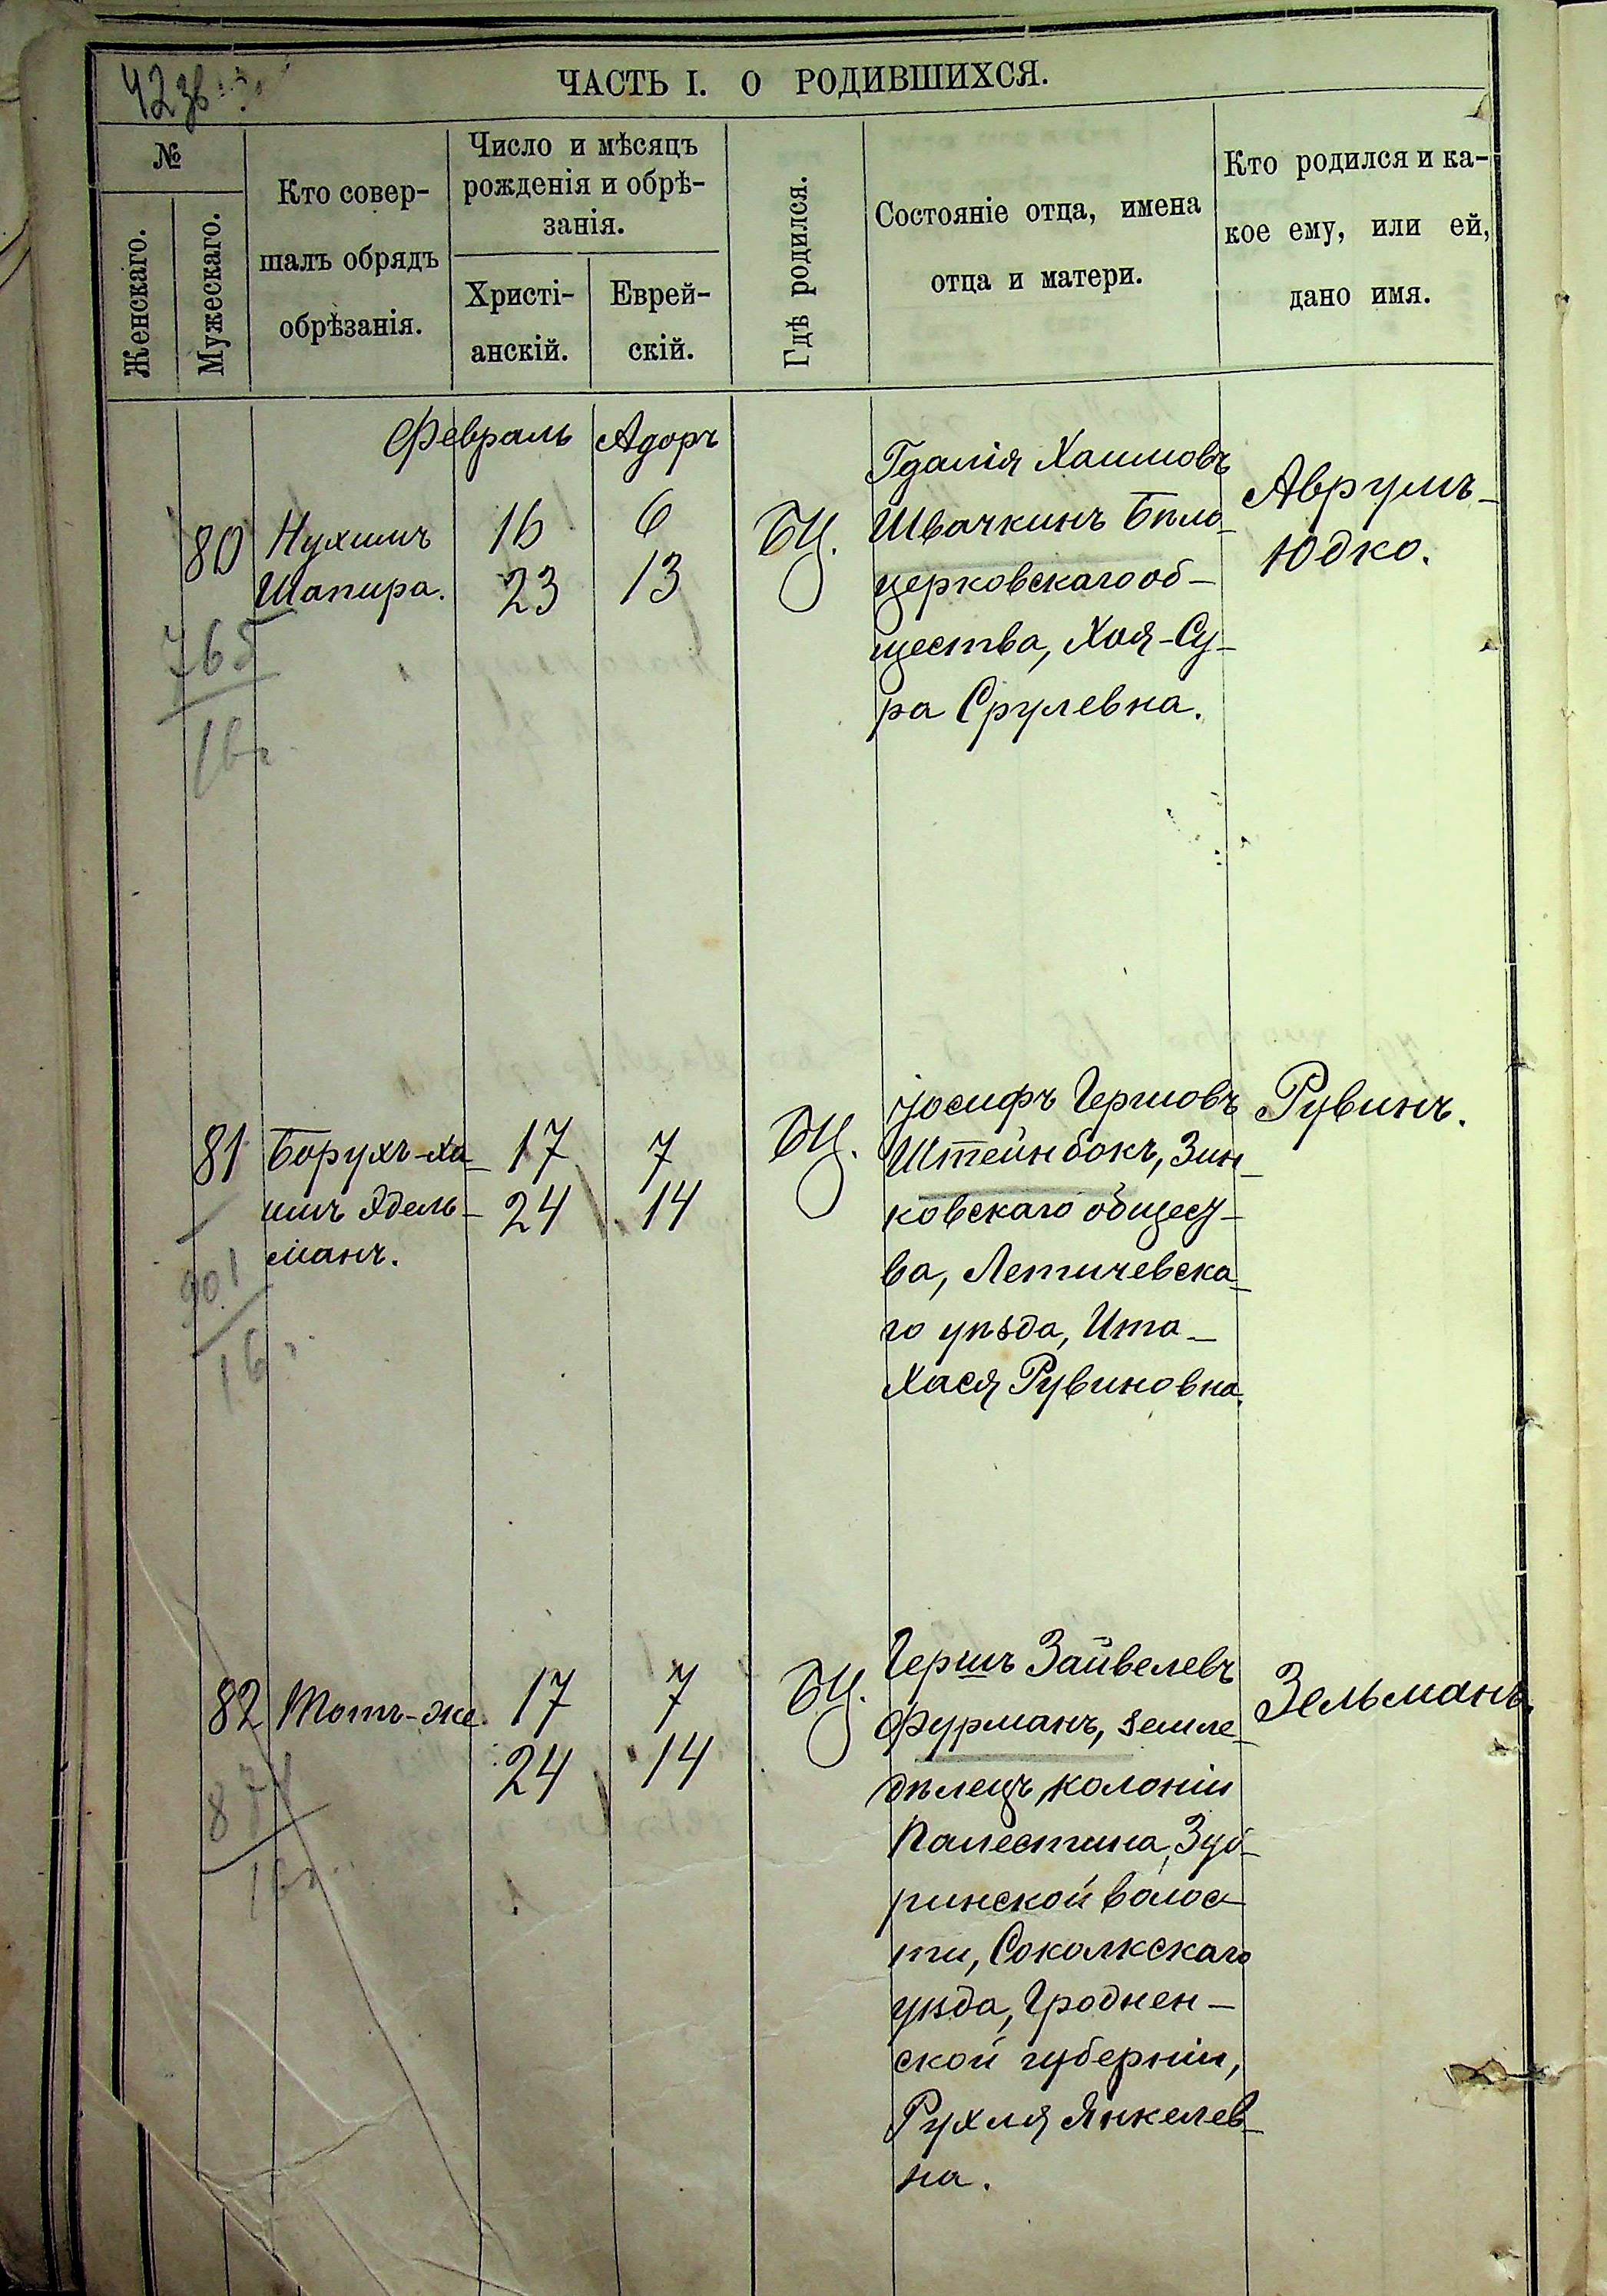 42 зв
ЧАСТЬ I. О РОДИВШИХСЯ.
№
Женскаго.
Мужескаго.
Кто совер-
шалъ обрядъ
обрѣзанія.
Число и мѣсяцъ
рожденія и обрѣ-
занія.
Христі-
анскій.
Еврей-
скій.
Гдѣ родился.
Состояніе отца, имена
отца и матери.
Кто родился и ка-
кое ему, или ей,
дано имя.
Февраль Адоръ
80
Нухимъ
Шапира.
16
23
6
13
БЦ.
Гдалія Хаимовъ
Швачкинъ Бѣло-
церковскаго об-
щества, Хая-Су-
ра Срулевна.
Аврумъ-
Юдко.
765
16г
81
Борухъ-Ха-
имъ Эдель-
манъ.
17
24
7
14
БЦ.
Іосифъ Гершовъ
Штейнбокъ, Зин-
ковскаго общест-
ва, Летичевска-
го уѣзда, Ита-
Хася Рувиновна.
Рувинъ.
901
16
82
Тотъ-же.
17
24
7
14
БЦ.
Гершъ Зайвелевъ
Фурманъ, земле-
дѣлецъ колоніи
Палестина, Зуб-
ринской волос-
ти, Соколкскаго
уѣзда, Гроднен-
ской губерніи,
Рухля Янкелев-
на.
Зельманъ.
874
16г.